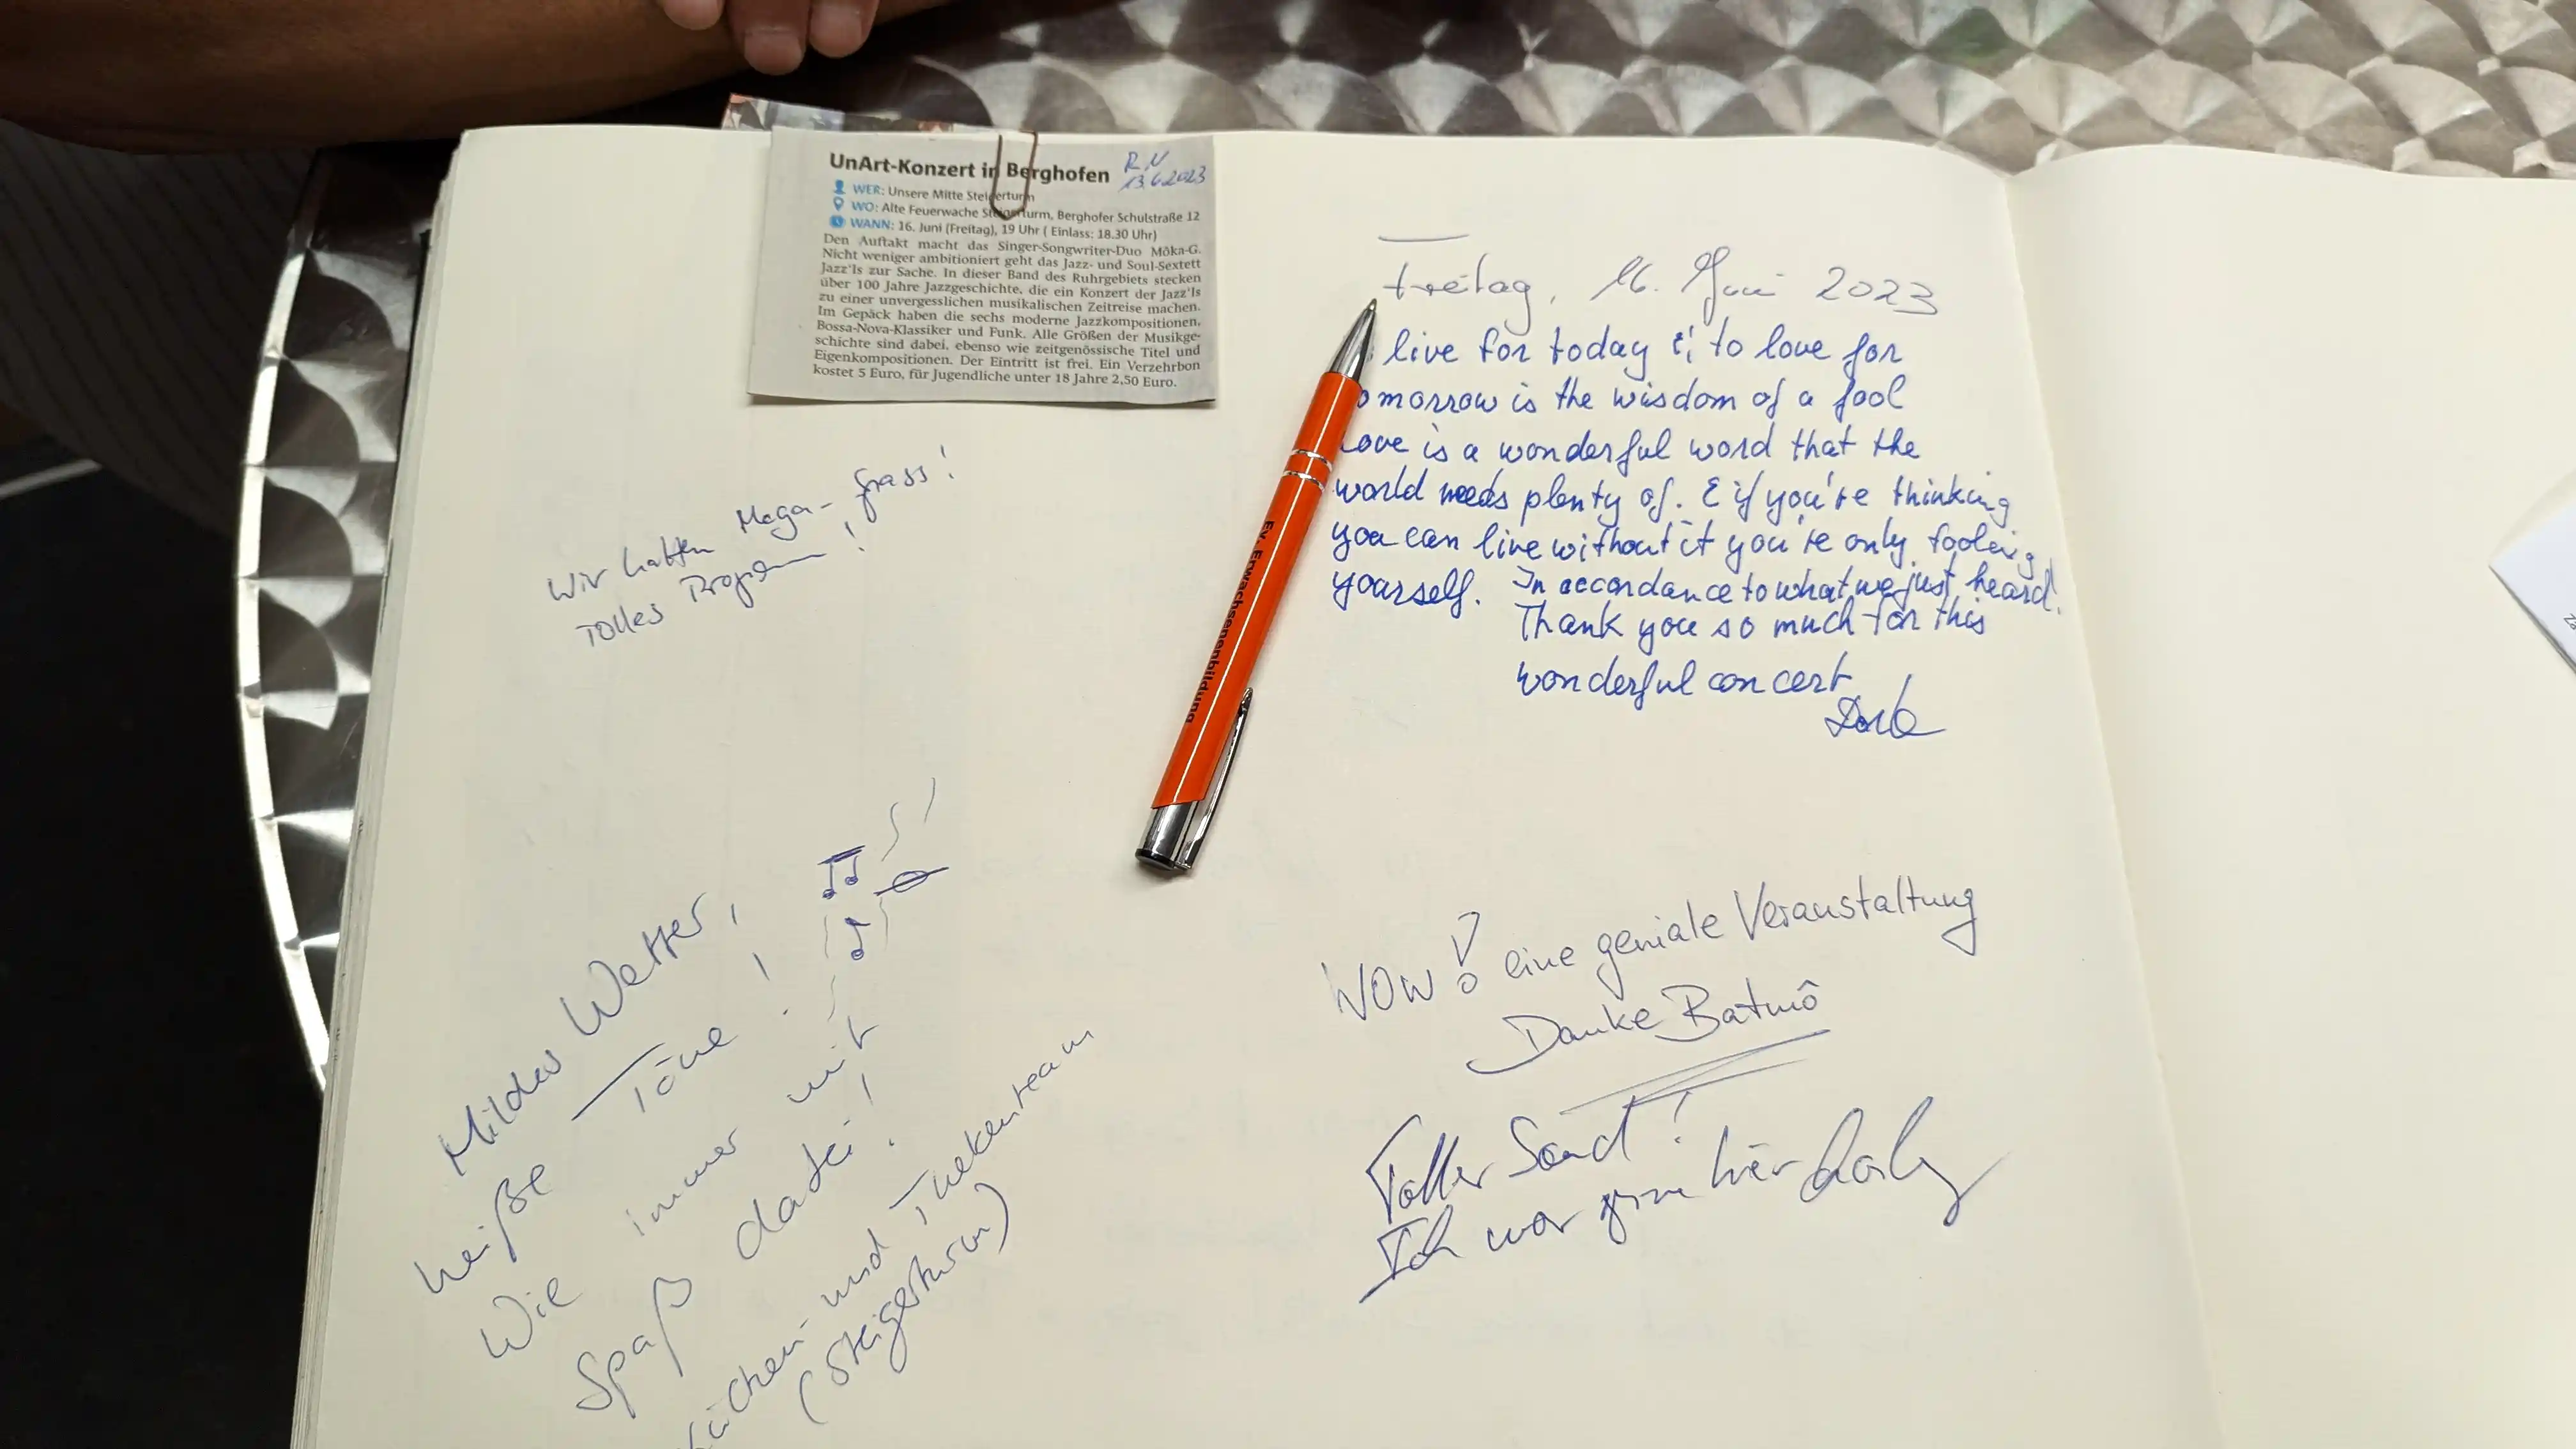 UnArt-Konzert in Berghofen
R.N
13.6.2023
WER: Unsere Mitte Steigerturm
WO: Alte Feuerwache Steigerturm, Berghofer Schulstraße 12
WANN: 16. Juni (Freitag), 19 Uhr ( Einlass: 18.30 Uhr)
Den Auftakt macht das Singer-Songwriter-Duo Môka-G.
Nicht weniger ambitioniert geht das Jazz- und Soul-Sextett
Jazz'Is zur Sache. In dieser Band des Ruhrgebiets stecken
über 100 Jahre Jazzgeschichte, die ein Konzert der Jazz'Is
zu einer unvergesslichen musikalischen Zeitreise machen.
Im Gepäck haben die sechs moderne Jazzkompositionen,
Bossa-Nova-Klassiker und Funk. Alle Größen der Musikge-
schichte sind dabei, ebenso wie zeitgenössische Titel und
Eigenkompositionen. Der Eintritt ist frei. Ein Verzehrbon
kostet 5 Euro, für Jugendliche unter 18 Jahre 2,50 Euro.
Wir hatten Mega-Spass!
Tolles Programm!
Mildes Wetter,
heiße Töne!
Wie immer mit
Spaß dabei!
Küchen- und Thekenteam
(Steigerturm)
Freitag, 16. Juni 2023
live for today & to love for
omorrow is the wisdom of a fool
Love is a wonderful word that the
world needs plenty of. & if you're thinking
you can live without it you're only fooling
yourself. In accordance to what we just heard!
Thank you so much for this
wonderful concert
WOW! eine geniale Veranstaltung
Danke Batmô
Toller Sound!
Ich war gerne hier
Ev. Erwachsenenbildung